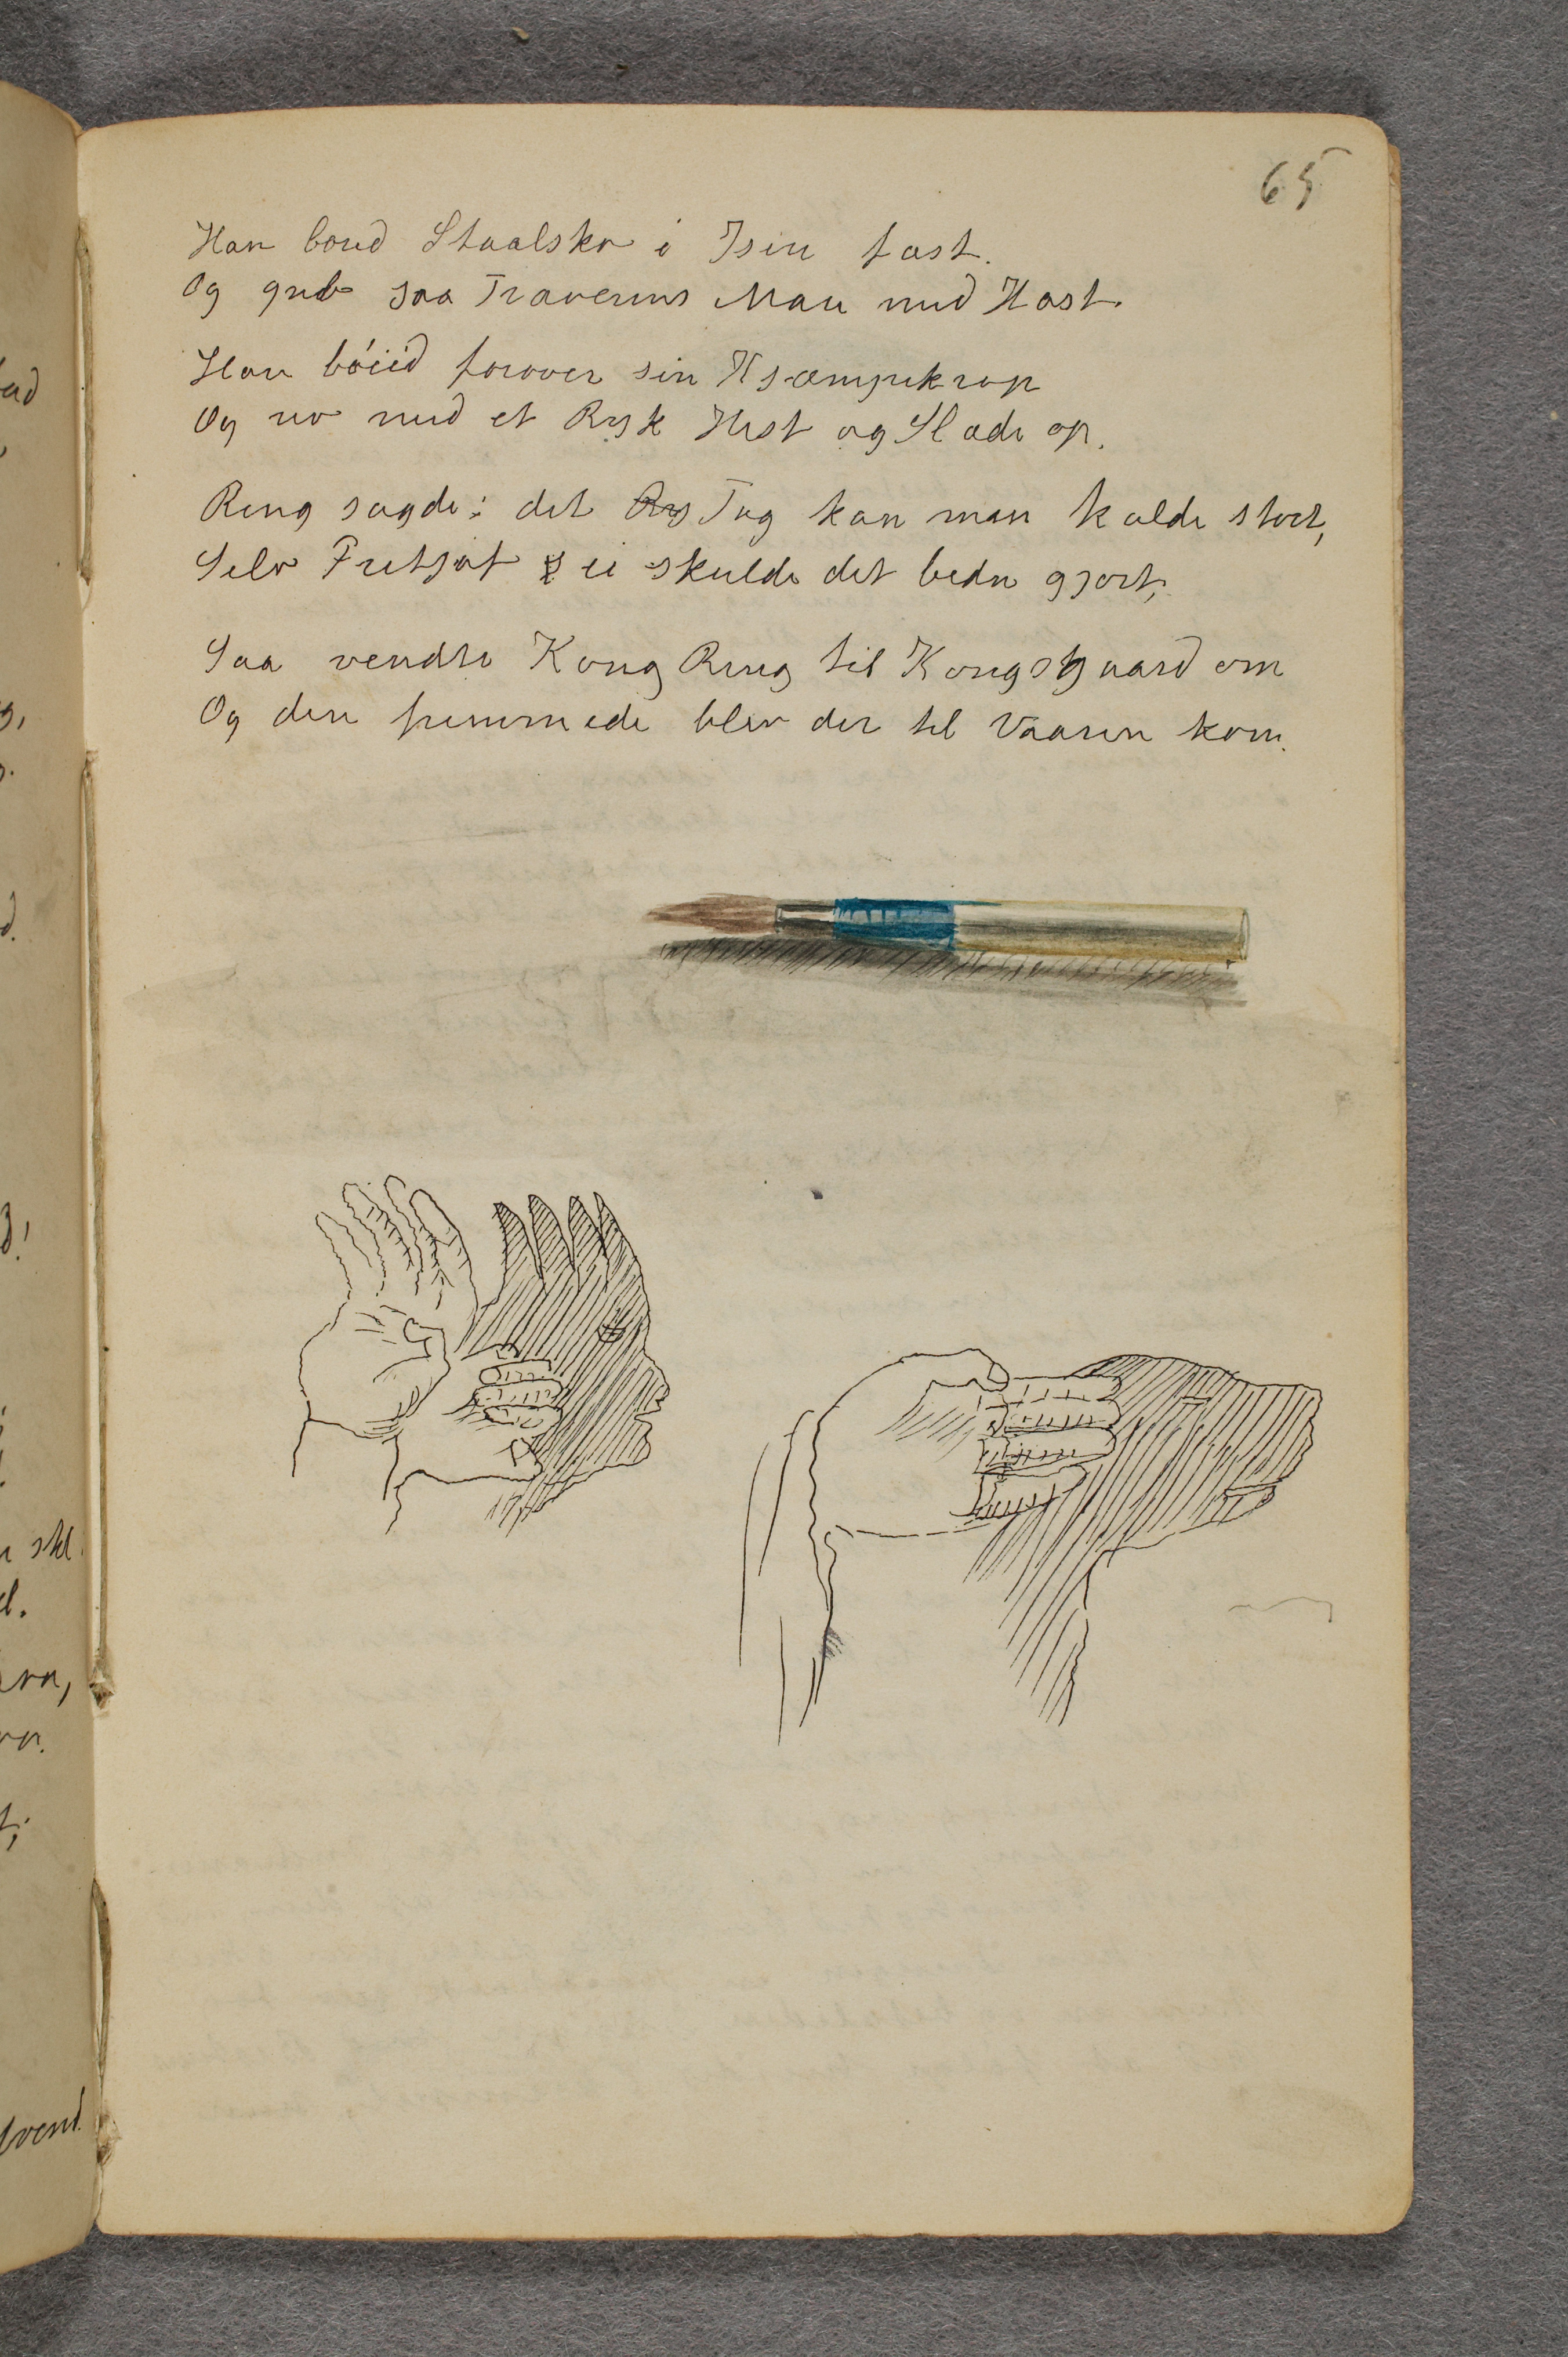 65
Han bored Staalsko i Isen fast.
Og greb saa Traverens Man med Hast.
Han böied forover sin Kjæmpekrop
Og rev med et Ryk Hest og Slæde op.
Ring sagde: det Ry Tag kan man kalde stort,
Selv Fretjof s ei skulde det bedre gjort,
Saa vendte Kong Ring til Kongsgaard om
Og den fremmede blev der til Vaaren kom.